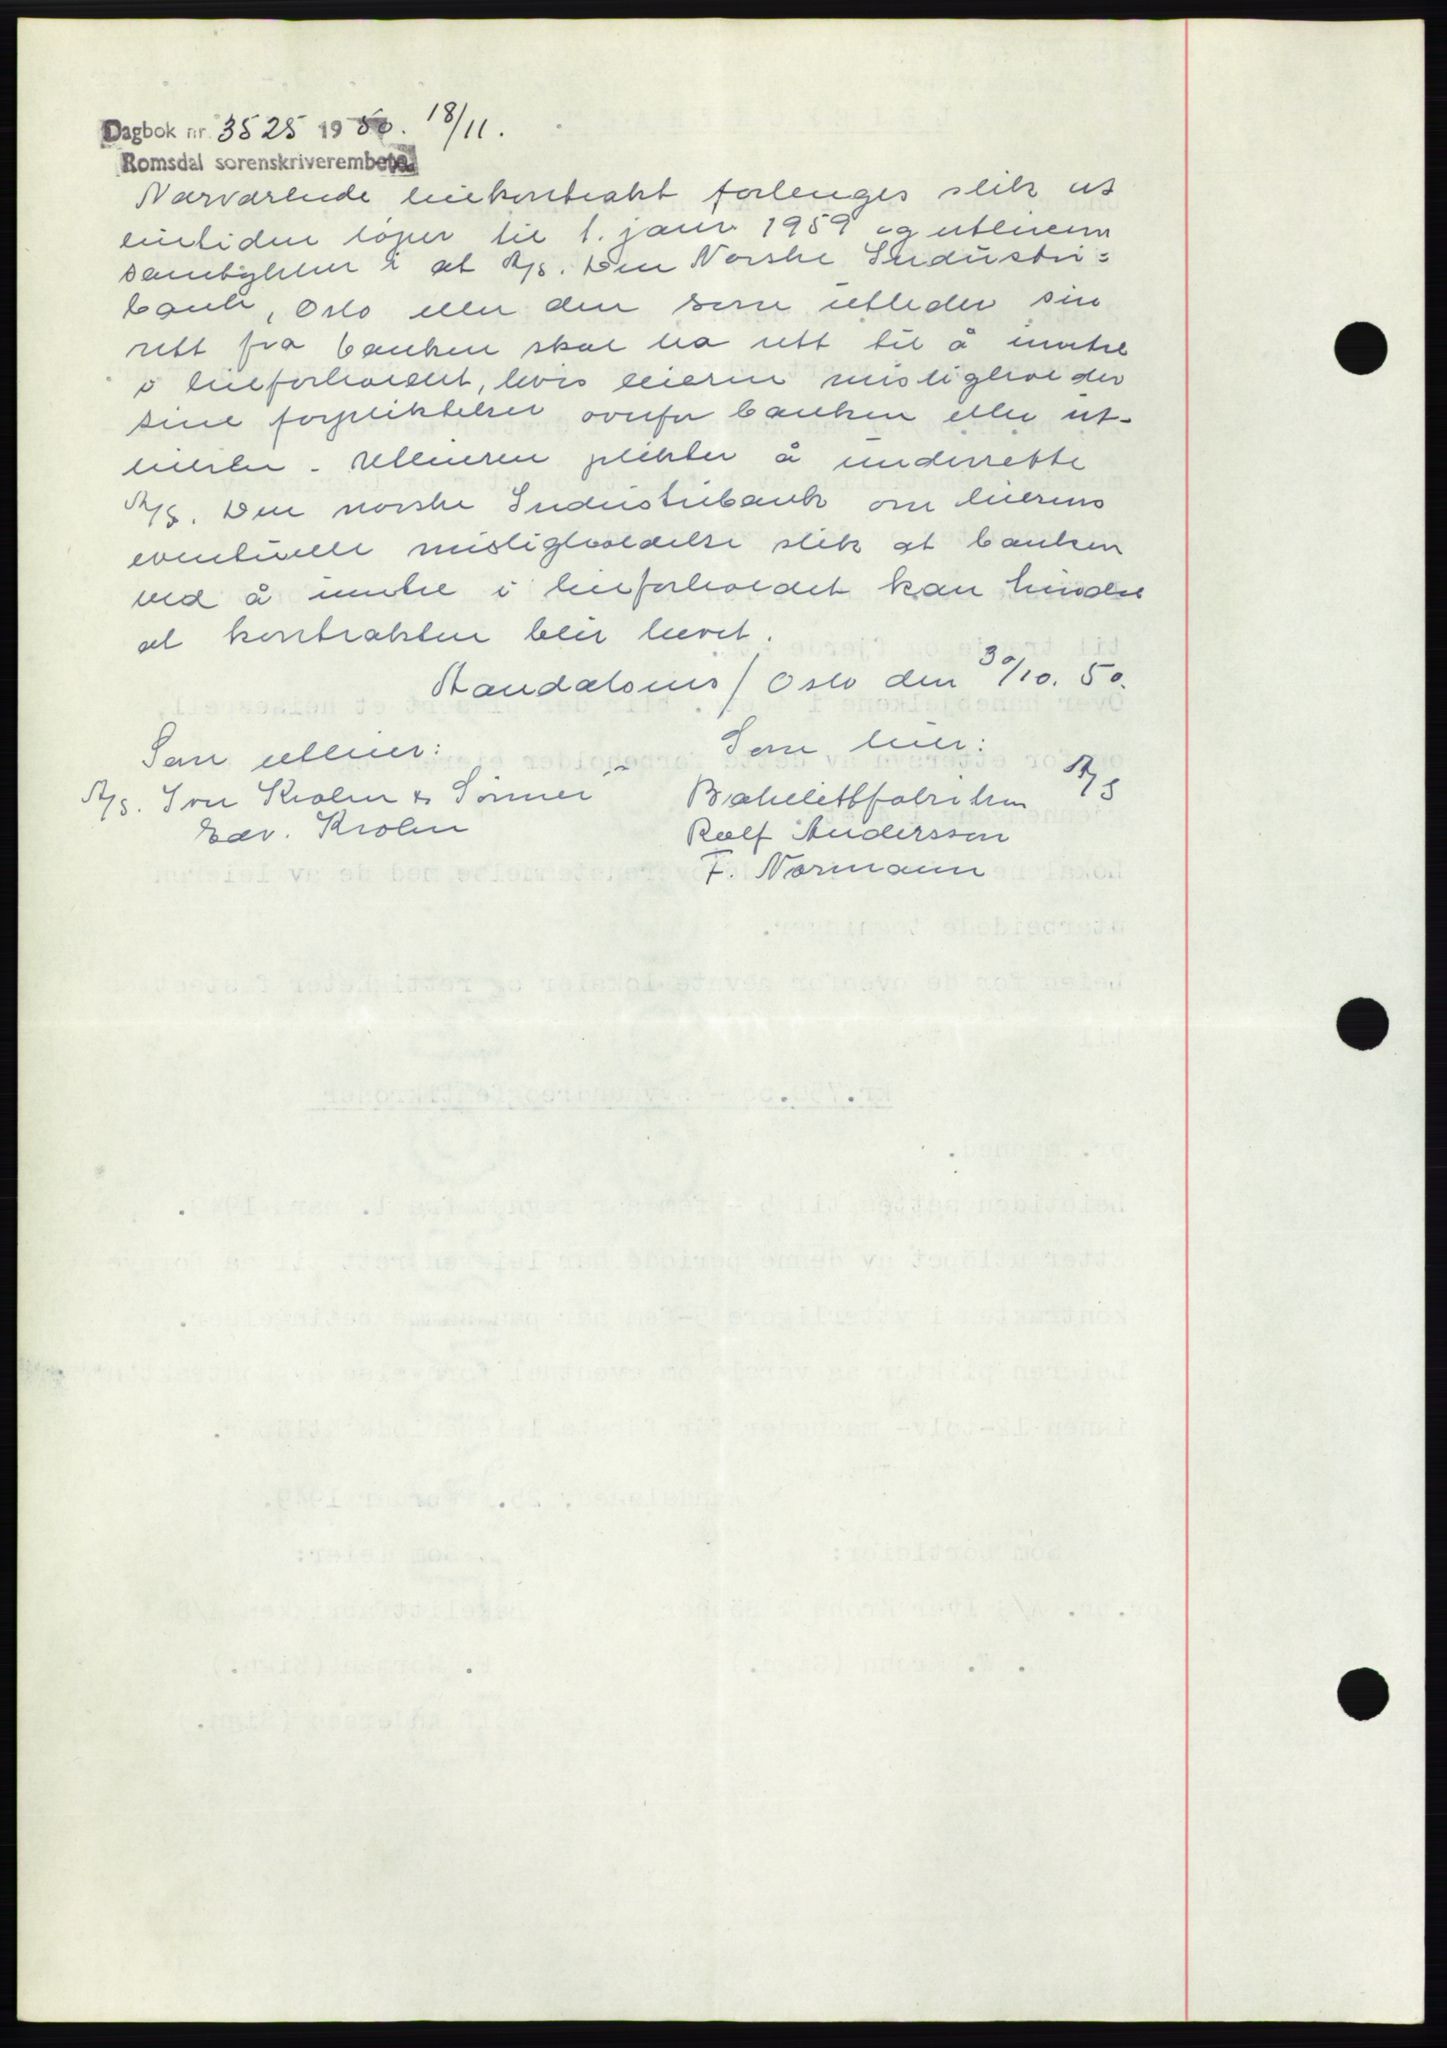 Dagbok nr. 3525 1950. 18/11.
Romsdal sorenskriverembete
Nærværende leiekontrakt forlenges slik at
leietiden løper til 1. jan. 1959 og utleieren
samtykker i at A/s. Den Norske Industri=
bank, Oslo eller den som utleder sin
rett fra banken skal ha rett til å inntre
i leieforholdet, hvis leieren misligholder
sine forpliktelser overfor banken eller ut-
leieren. Utleieren plikter å underrette
A/S. Den norske Industribank om leierens
eventuelle misligholdelse slik at banken
ved å inntre i leieforholdet kan hindre
at kontrakten blir hevet.
Åandalsnes / Oslo den 30/10. 50.
Som utleier:
Som leier:
A/s. Iver Krohn & Sønner
Bakelittfabrikken A/S
Edv. Krohn
Rolf Anderssen
F. Normann